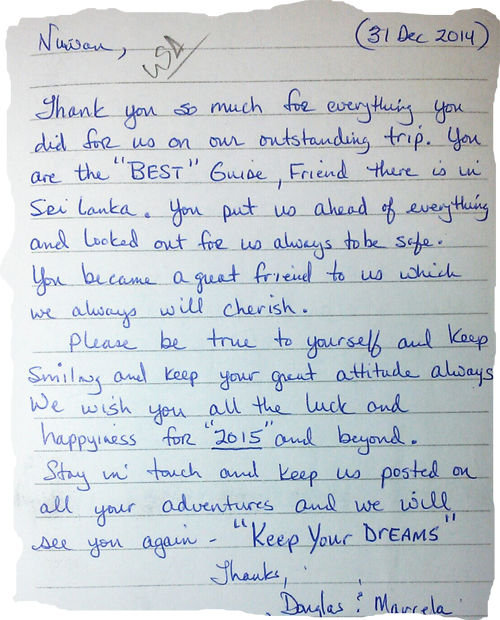 Nuwan, (31 Dec 2014)
USA
Thank you so much for everything you
did for us on our outstanding trip. You
are the "BEST" Guide, Friend there is in
Sri Lanka. You put us ahead of everything
and looked out for us always to be safe.
You became a great friend to us which
we always will cherish.
Please be true to yourself and keep
Smiling and keep your great attitude always
We wish you all the luck and
happyiness for "2015" and beyond.
Stay in touch and keep us posted on
all your adventures and we will
see you again - "Keep Your DREAMS"
Thanks,
Douglas & Marcela